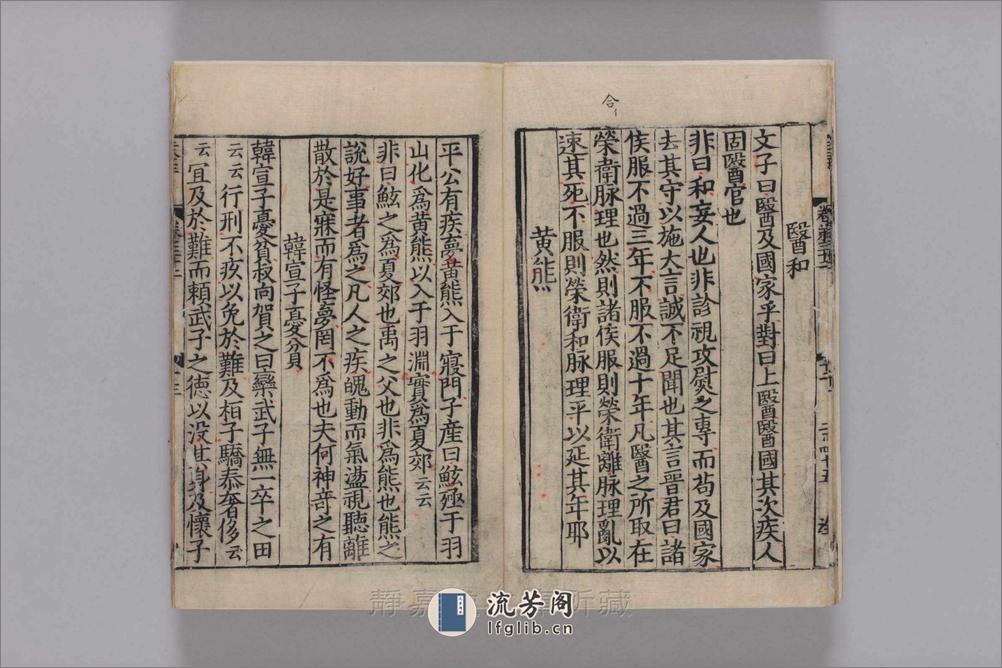 合
醫和
文子曰醫及國家乎對曰上醫醫國其次疾人
固醫官也
非曰和妄人也非診視攻熨之專而苟及國家
去其守以施大言誠不足聞也其言晉君曰諸
侯服不過三年不服不過十年凡醫之所取在
榮衛脉理也然則諸侯服則榮衛離脉理亂以
速其死不服則榮衛和脉理平以延其年耶
黄熊
平公有疾夢黄熊入于寢門子產曰鮌殛于羽
山化爲黄熊以入于羽淵實爲夏郊云云
非曰鮌之爲夏郊也禹之父也非爲熊也熊之
說好事者爲之凡人之疾魄動而氣盪視聽離
散於是寐而有怪夢罔不爲也夫何神竒之有
韓宣子憂貧
韓宣子憂貧叔向賀之曰欒武子無一卒之田
云云行刑不疚以免於難及桓子驕泰奢侈云
云宜及於難而頼武子之德以没其身及懷子
靜嘉 所藏
流芳阁
lfglib.cn